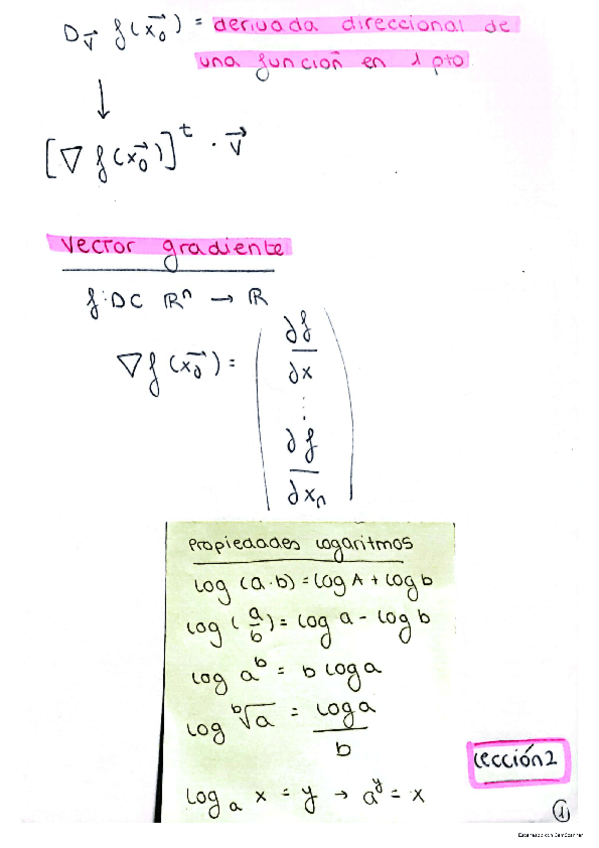 D_v⃗ f(x₀⃗) = derivada direccional de
una función en 1 pto.
↓
[∇ f(x₀⃗)]ᵗ · v⃗
vector gradiente
f: D ⊂ ℝⁿ → ℝ
∇f(x₀⃗) = (∂f/∂x ⋮ ∂f/∂xₙ)
Propiedades logaritmos
log (a·b) = log A + log b
log (a/b) = log a - log b
log aᵇ = b log a
log ᵇ√a = log a / b
logₐ x = y → aʸ = x
Lección 2
1
Escaneado con CamScanner